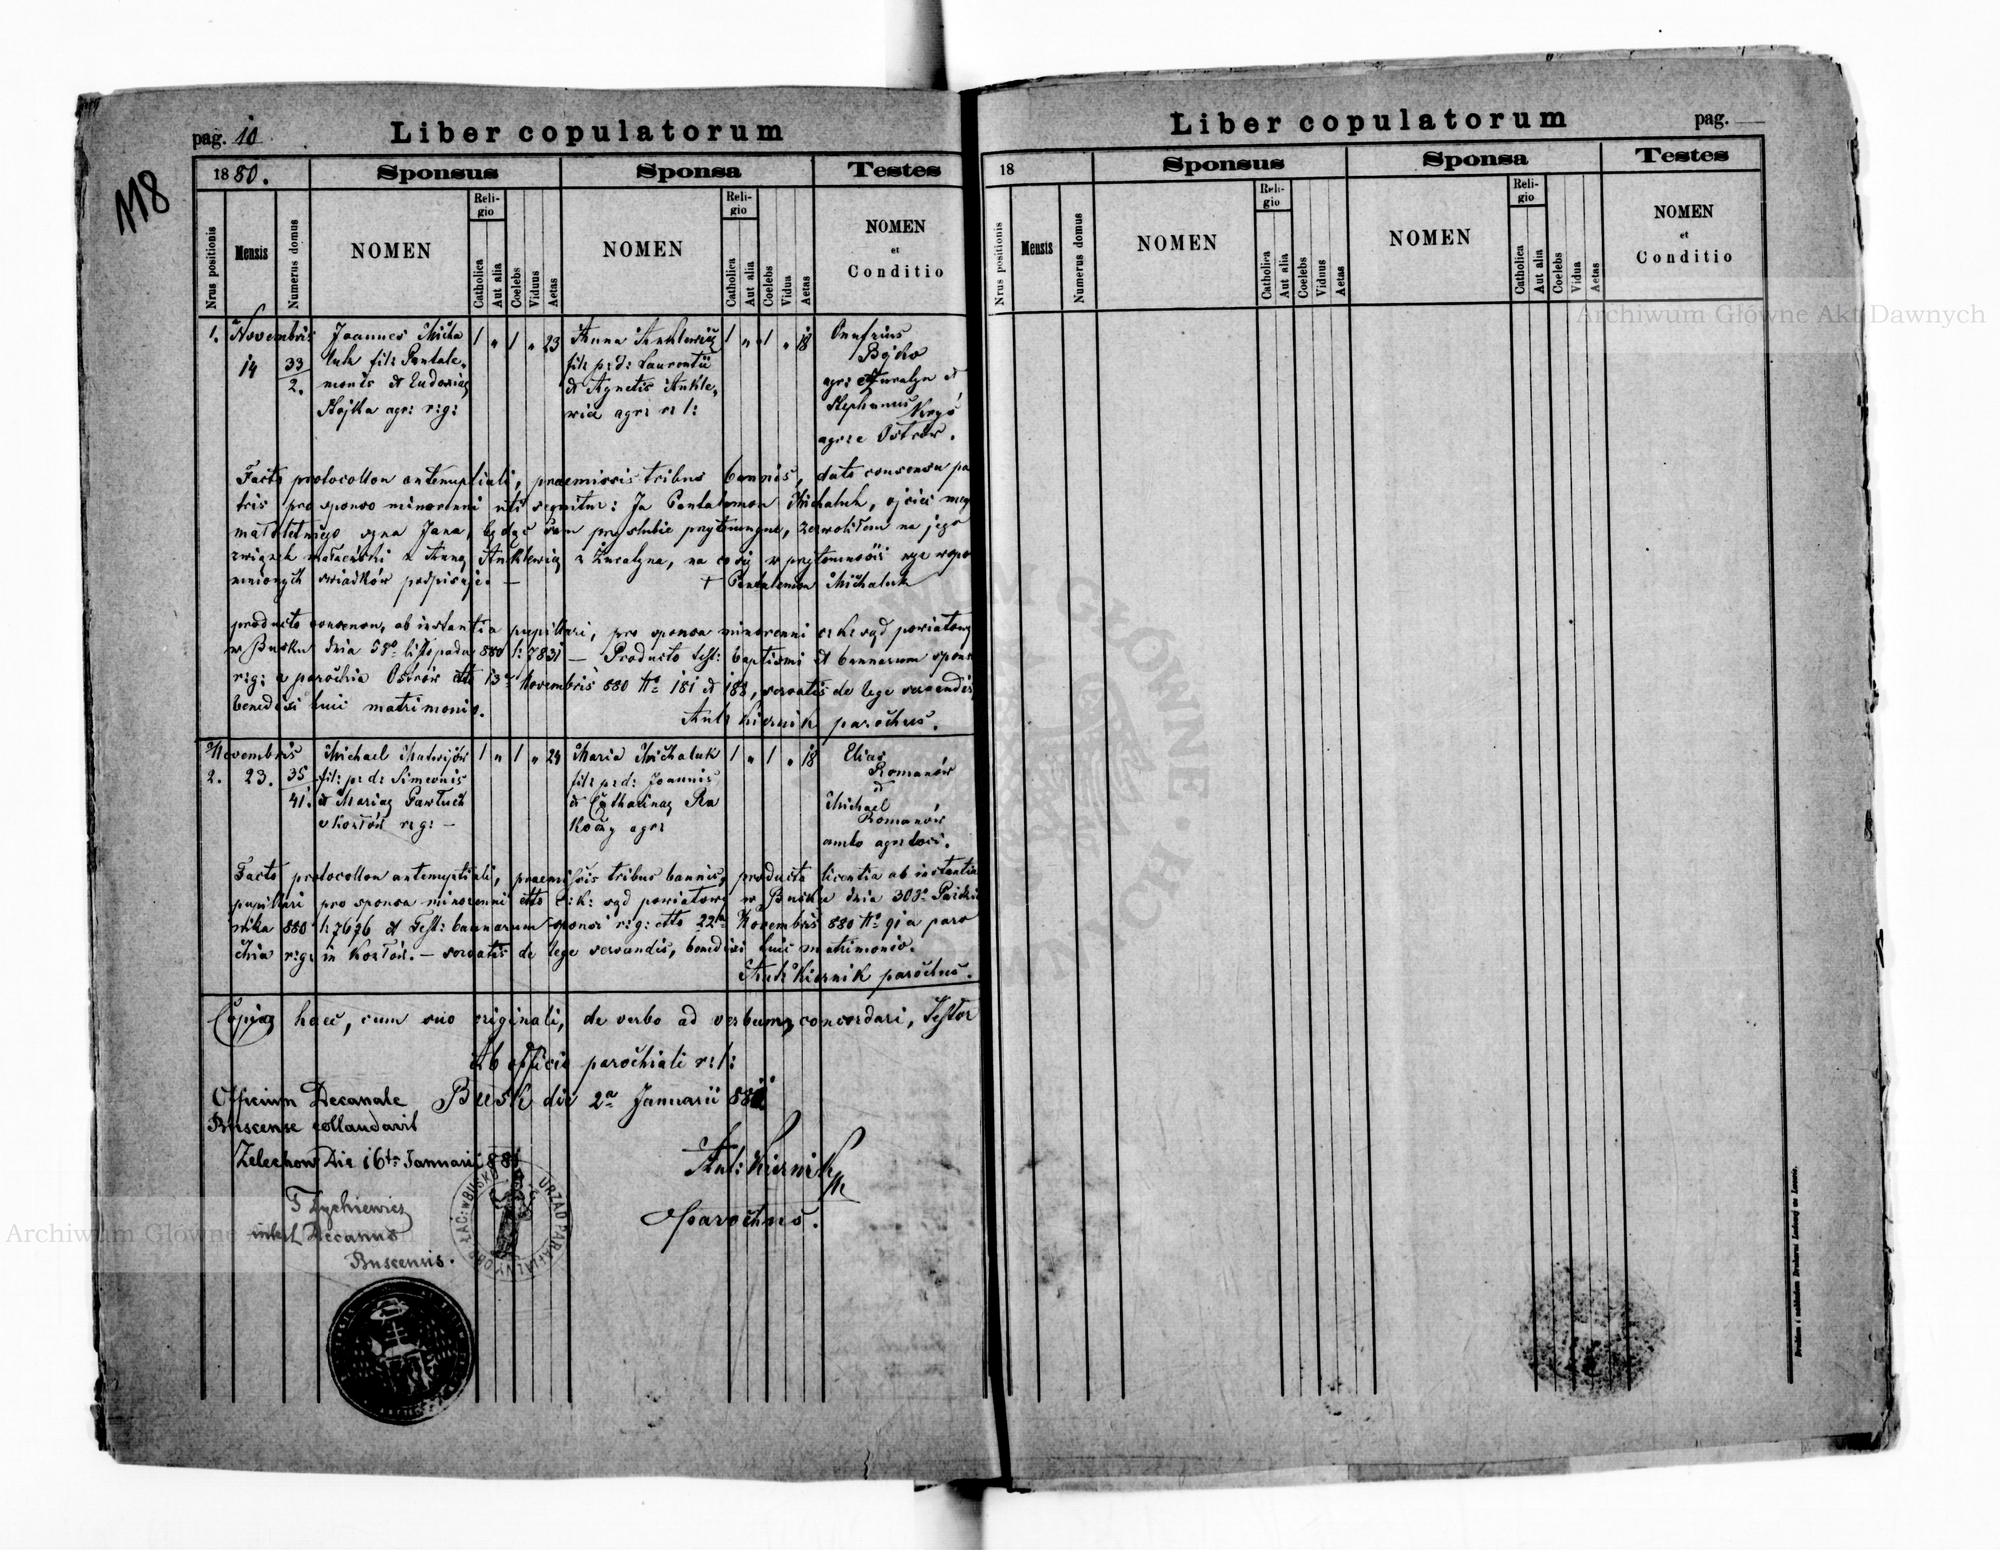 118
pag. 10
Liber copulatorum
1880.
Sponsus
Sponsa
Testes
Nrus positionis
Mensis
Numerus domus
NOMEN
Religio
Catholica
Aut alia
Coelebs
Viduus
Aetas
NOMEN
Religio
Catholica
Aut alia
Coelebs
Vidua
Aetas
NOMEN
et
Conditio
1. Novembris
14
33
2.
Joannes Micha
luk fil: Pantale„
monis et Eudoxiae
agr: r:g:
1 „ 1 „ 23
Anna Anklewicz
fil: p: d: Laurentii
et Agnetis Ankle„
wicz agr: r: l:
1 „ 1 „ 18
Onufrius
Bojko
agr: et
Stephanus
agr: e Ostrów.
Facto protocollon antenuptiali, praemissis tribus bannis, dato consensu pa
tris pro sponso minorenni uti sequitur: Ja Pantalemon Michaluk, ojciec mego
małoletniego syna Jana, będąc sam przy ślubie przytomnym, zezwoliłem na jego
związek małżeński z Anną Anklewicz z Żuratyna, na co się w przytomności wspo
mnionych świadków podpisuję. — + Pantalemon Michaluk
producto consensu, ab instantia pupillari, pro sponsa minorenni c: k: sąd powiatowy
w Busku dnia listopada 880 l: 7831 — Producto test: baptismi et bannorum sponsi
r:g: a parochia Ostrów dtto 13a Novembris 880 No 181 et 188, servatis de lege servandis
benedixi huic matrimonio.
Ant: Kiernik parochus.
Novembris
2. 23.
35
41.
Michael Matwijów
fil: p: d: Simeonis
et Mariae Pawluch
e Kozłów r: g: —
1 „ 1 „ 24
Maria Michaluk
fil: p: d: Joannis
et Catharinae Ra
koczy agr:
1 „ 1 „ 18
Elias
Romanów
et
Michael
Romanów
ambo agr: loci.
Facto protocollon antenuptiali, praemissis tribus bannis, producta licentia ab instantia
pupillari pro sponsa minorenni dtto c: k: sąd powiatowy w Busku dnia 30go Paździer
nika 880 l: 7676 et Test: bannorum sponsi r: g: dtto 22a Novembris 880 No 91 a paro
chia r: g: in Kozłów. — servatis de lege servandis, benedixi huic matrimonio.
Ant: Kiernik parochus.
Copiae haec, cum suo originali, de verbo ad verbum, concordari, Testor
Ab officio parochiali r: l:
Busk die 2a Januarii 881
Officium Decanale
Buscense collaudavit
Żelechow Die 16ta Januarii 881
Ant: Kiernik
parochus.
Decanus
Buscensis.
URZĄD PARAFIALNY OBR. ŁAC. w BUSKU
Liber copulatorum
pag.
18
Sponsus
Sponsa
Testes
Nrus positionis
Mensis
Numerus domus
NOMEN
Religio
Catholica
Aut alia
Coelebs
Viduus
Aetas
NOMEN
Religio
Catholica
Aut alia
Coelebs
Vidua
Aetas
NOMEN
et
Conditio
Archiwum Główne Akt Dawnych
Archiwum Główne
Drukiem i nakładem Drukarni Ludowej we Lwowie.